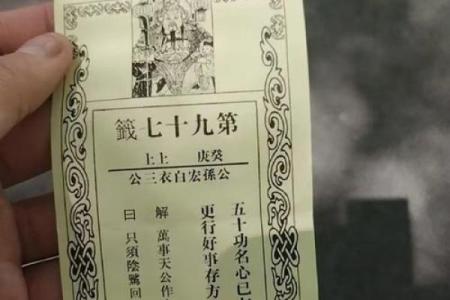 第九十七籤
癸庚 上上
公孫宏白衣三公
五十功名心已
更行好事存方
解曰
萬事天公作
只須陰騭回